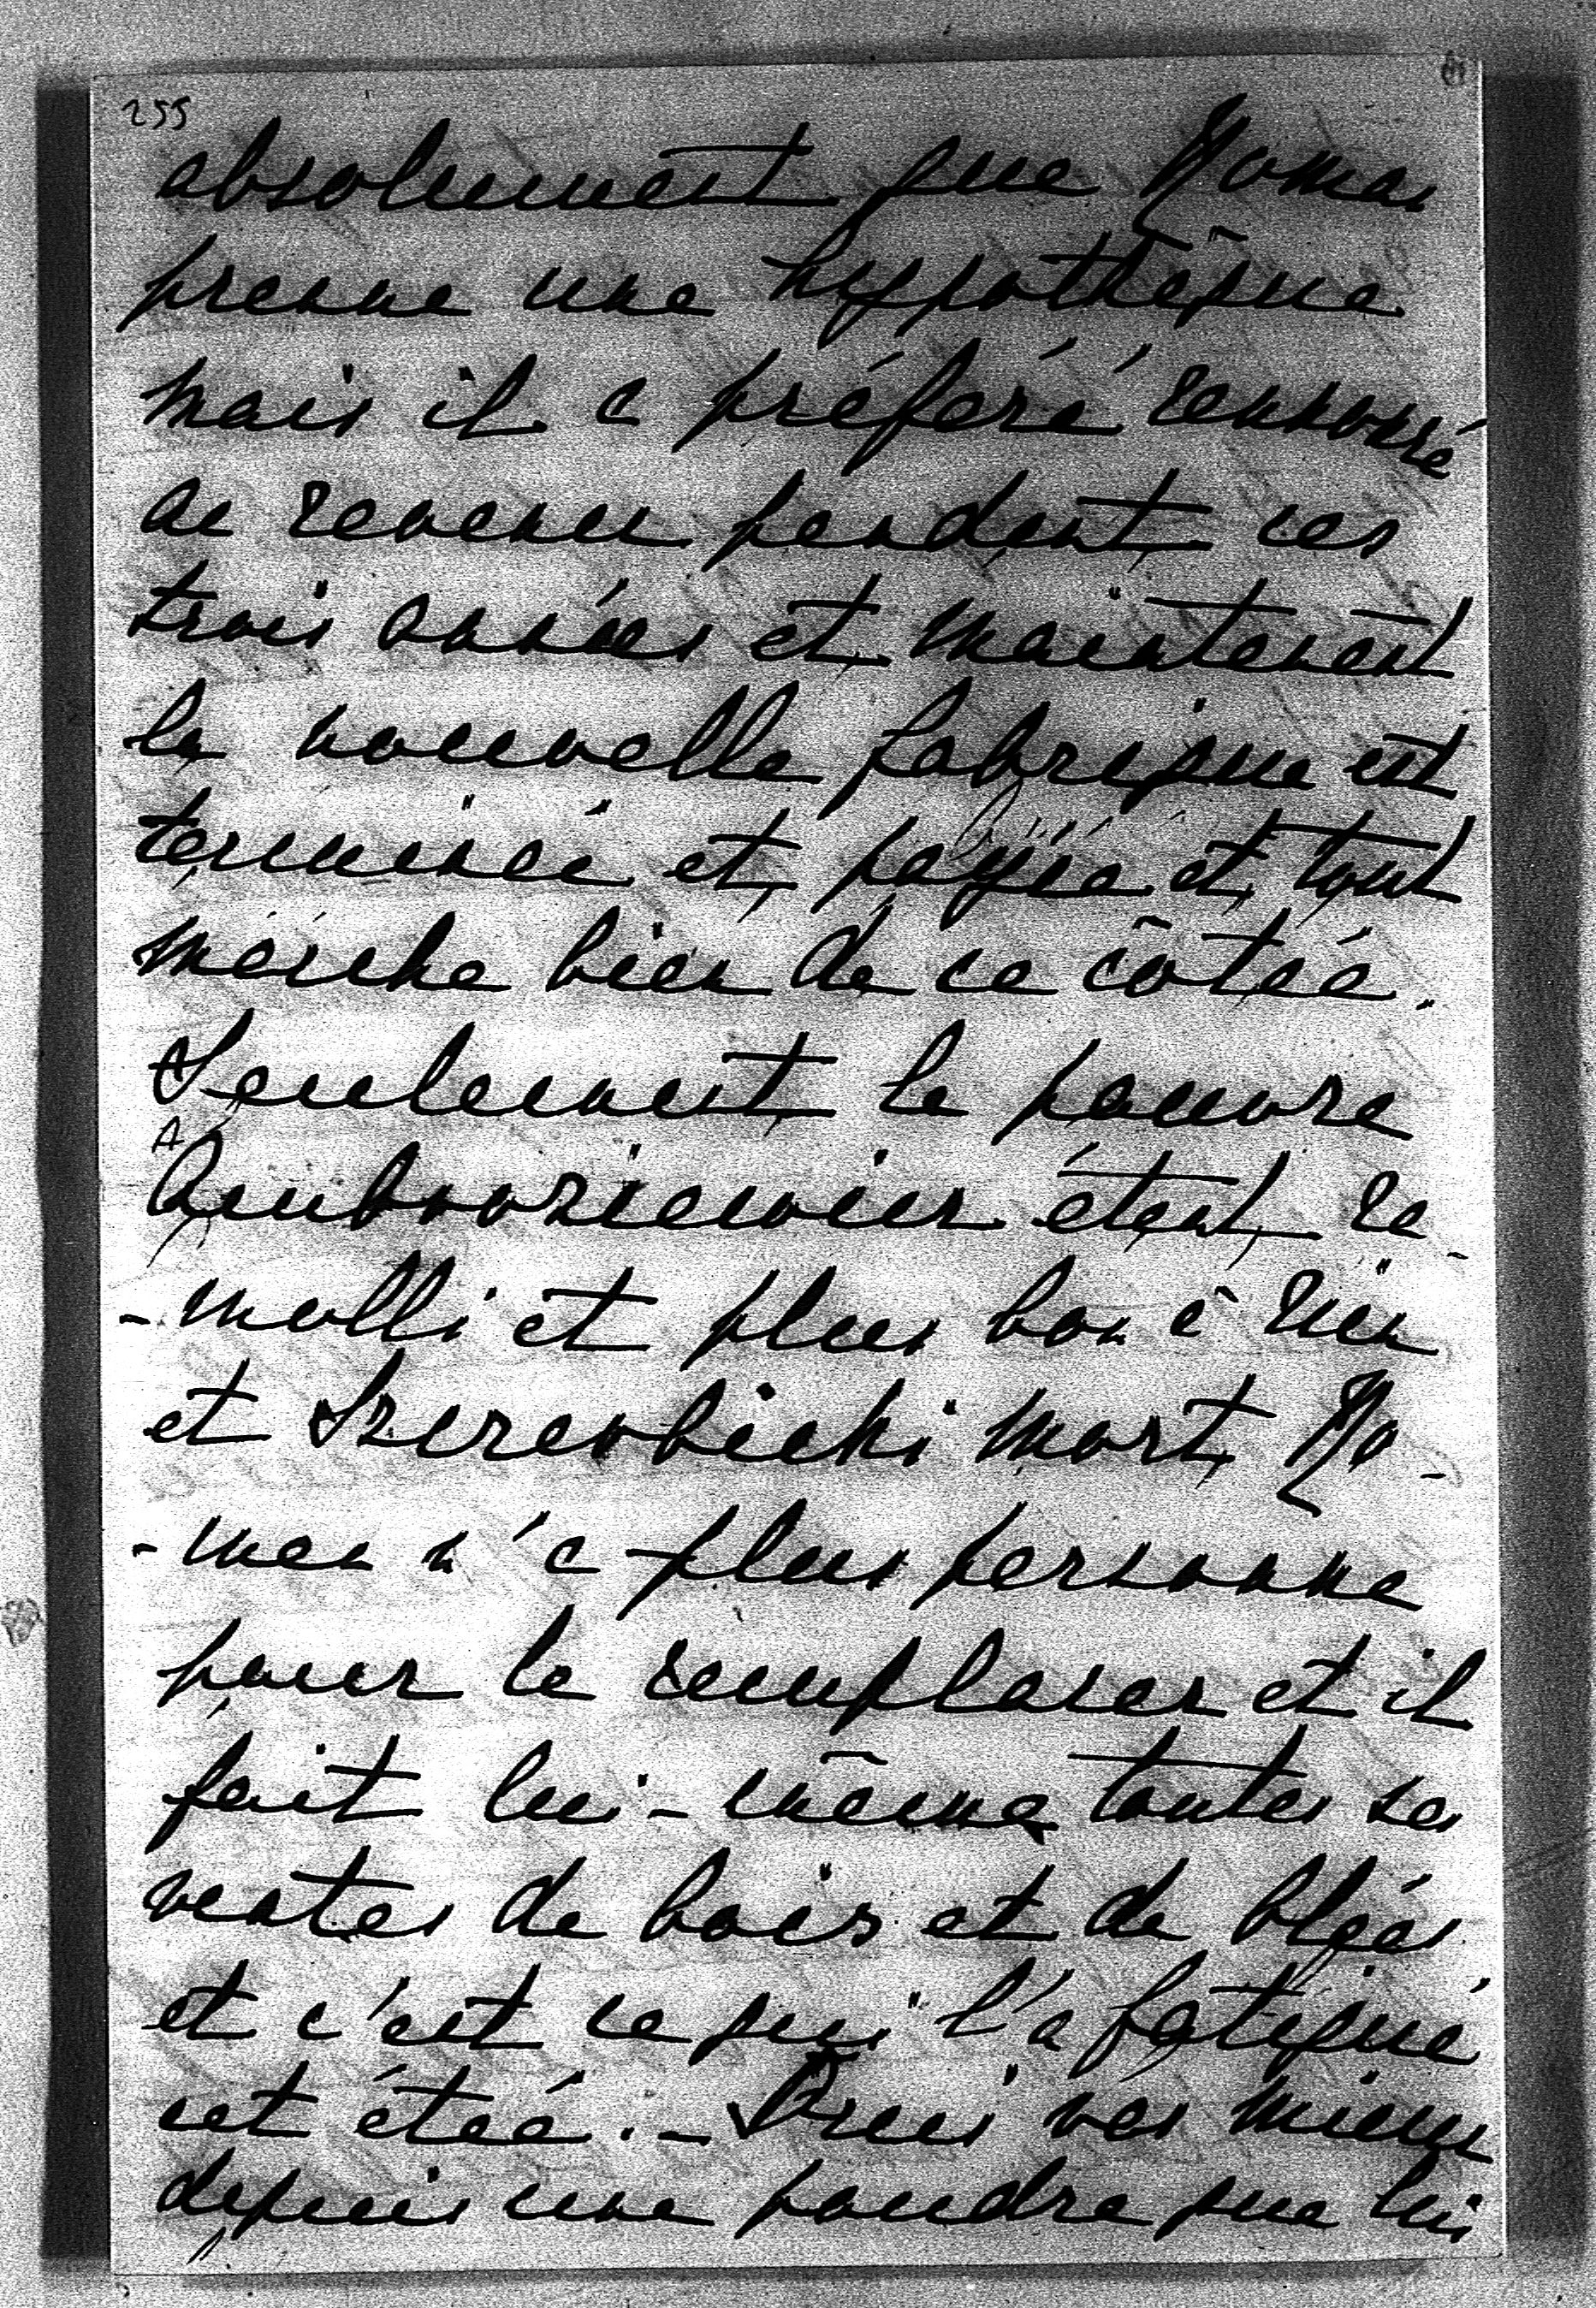 255
absolument que Roman
prenne une hypothèque
mais il a préféré renoncé
au revenu pendant ces
trois années et maintenant
la nouvelle fabrique est
terminée et payée et tout
marche bien de ce côtée.
Seulement le pauvre
étant ra-
-molli et plus bon à rien
et mort Ro-
-man n'a plus personne
pour le remplacer et il
fait lui-même toutes ses
ventes de bois et de blés
et c'est ce qui l'a fatigué
cet étée. - va mieux
depuis une poudre que lui